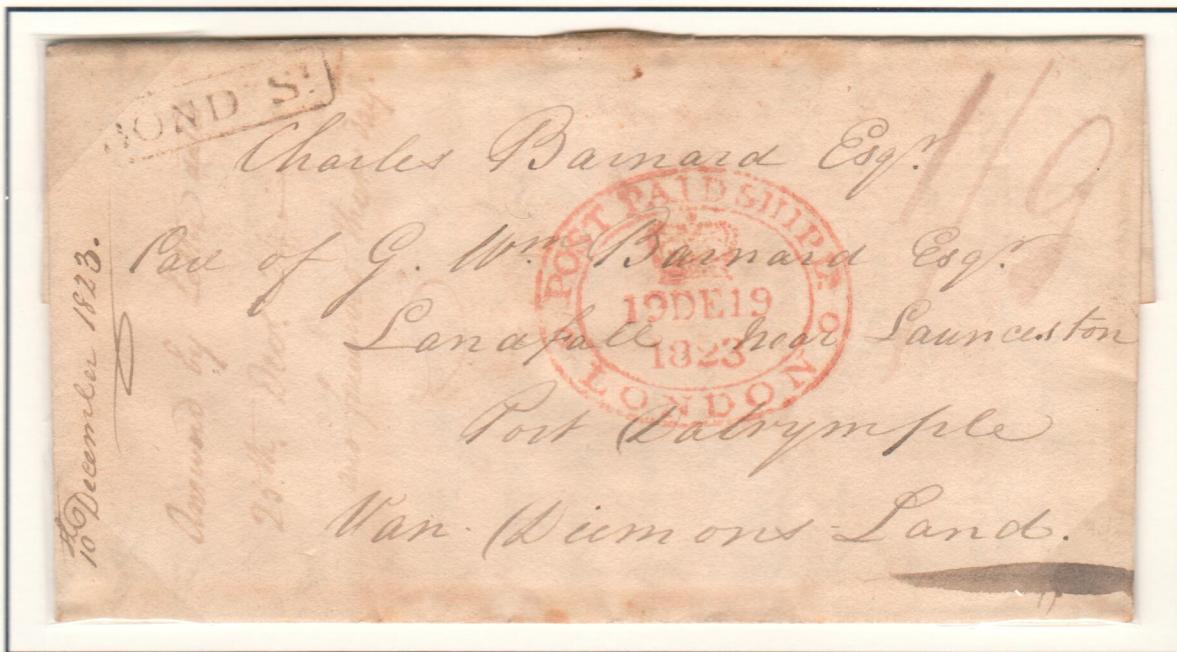 BOND St
Charles Barnard Esqr.
Care of G. Wm Barnard Esqr.
Landfall near Launceston
Port Dalrymple
Van Diemons Land.
1/9
POST PAID SHIP Lr
19DE19
1823
LONDON
10th December 1823.
Answered by
20th Decr.